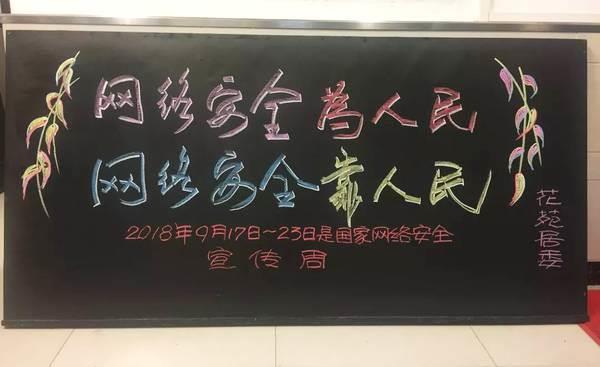 网络安全為人民
网络安全靠人民
2018年9月17日~23日是国家网络安全
宣传周
花苑居委